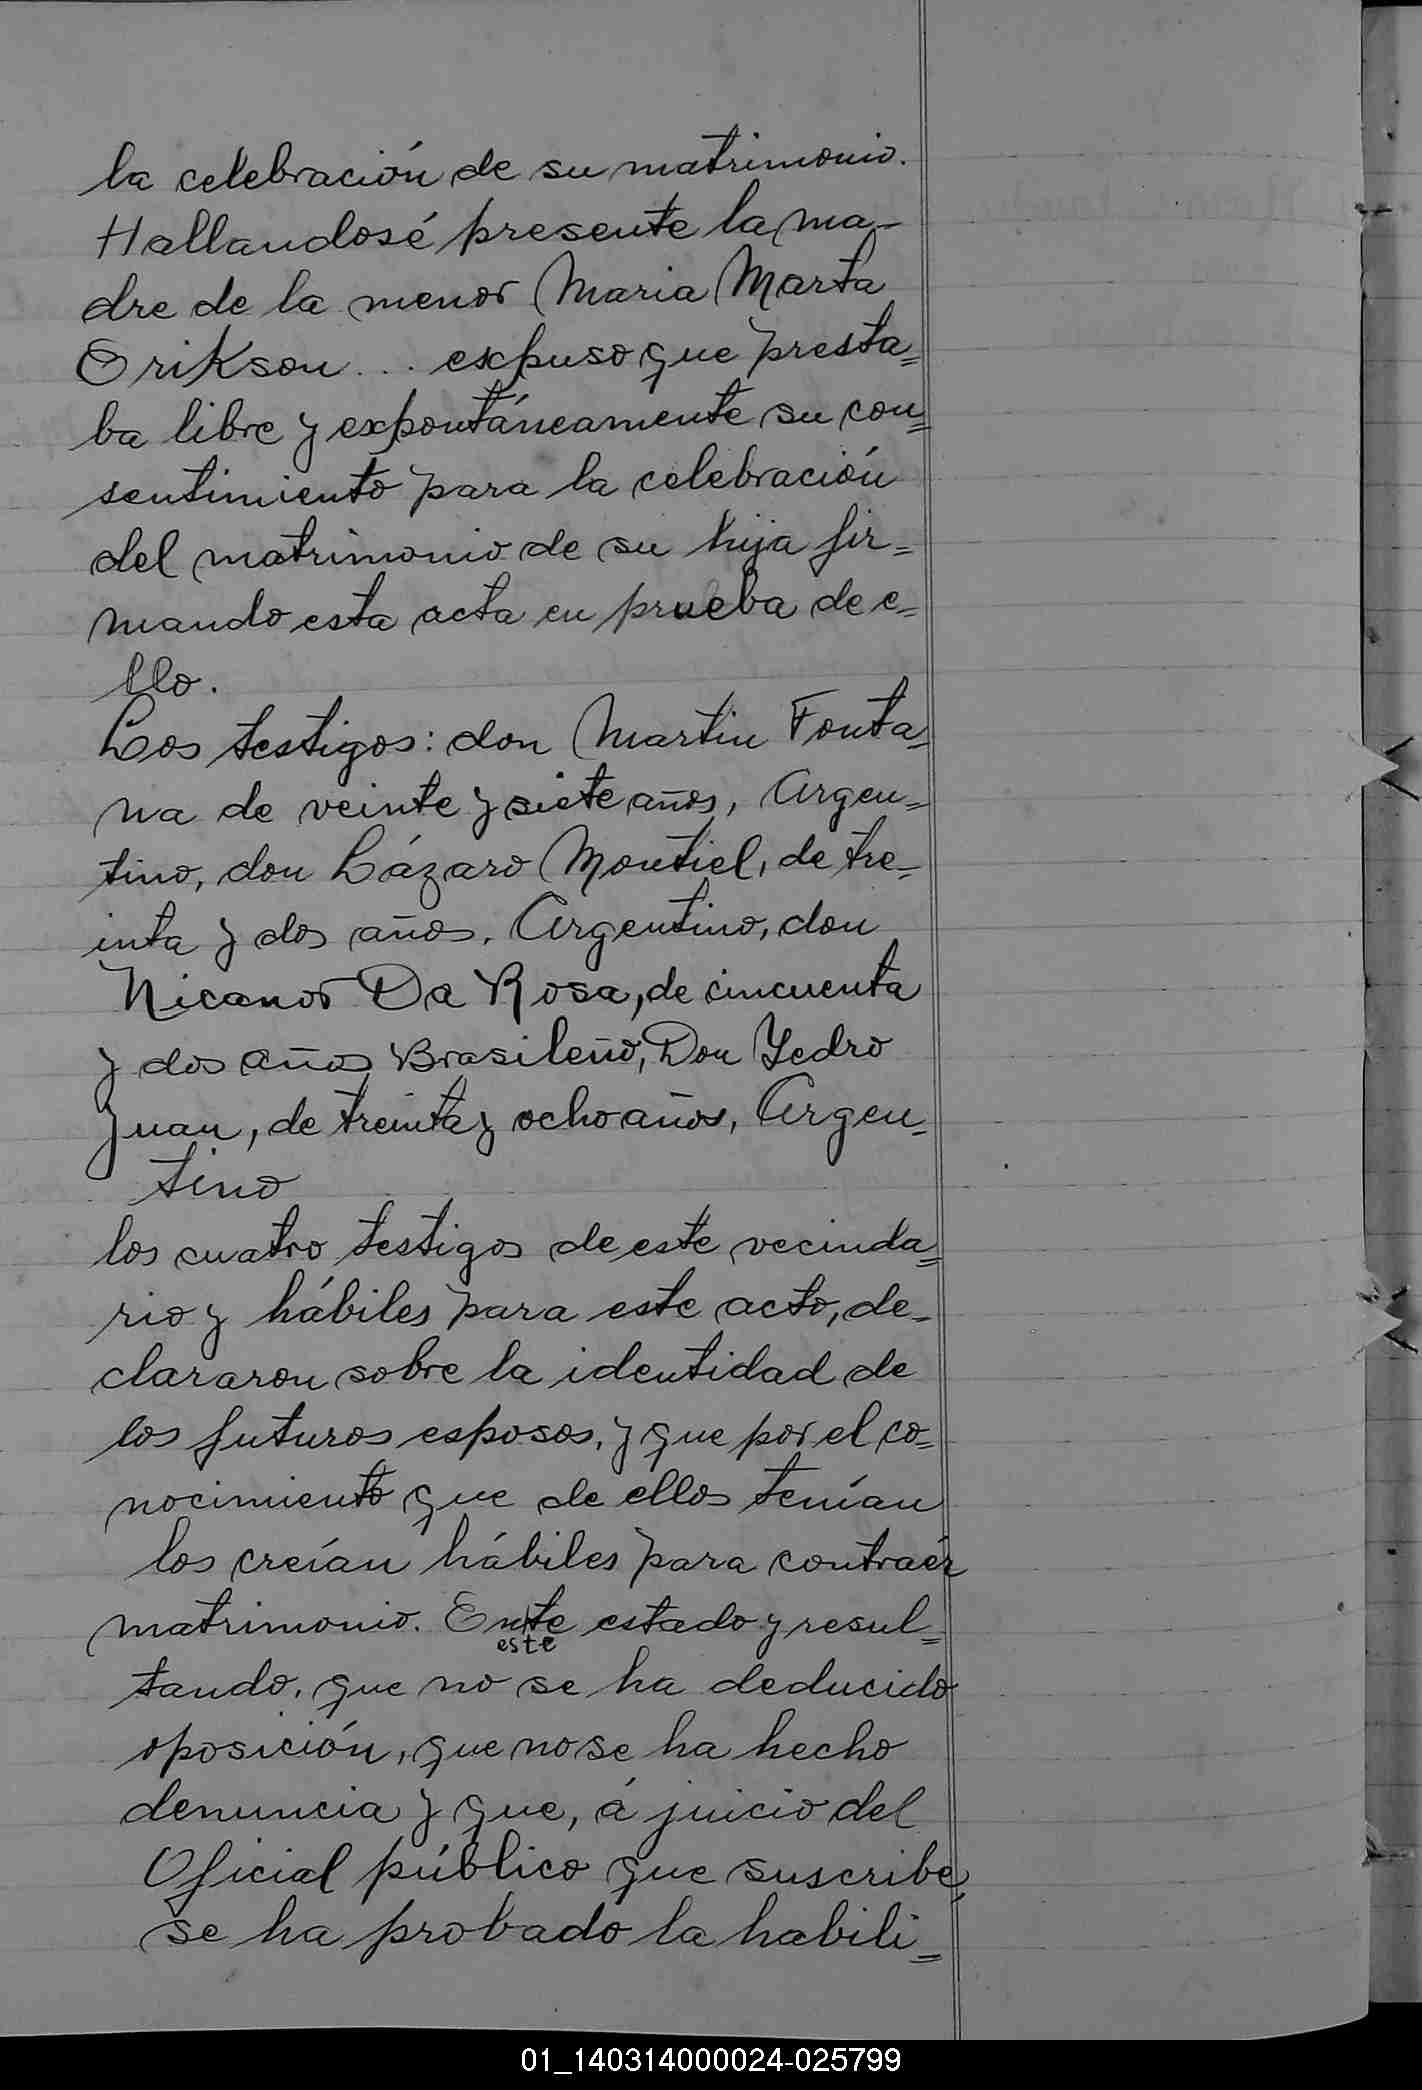 la celebración de su matrimonio.
Hallandosé presente la ma-
dre de la menor Maria Marta
Orikson... expuso que presta=
ba libre y expontáneamente su con=
sentimiento para la celebración
del matrimonio de su hija fir=
mando esta acta en prueba de e=
llo.
Los testigos: don Martin Fonta=
na de veinte y siete años, Argen=
tino, don Lázaro Montiel, de tre=
inta y dos años, Argentino, don
Nicanor Da Rosa, de cincuenta
y dos años Brasileño, Don Pedro
Juan, de treinta y ocho años, Argen=
tino
los cuatro testigos de este vecinda=
rio y hábiles para este acto, de=
clararon sobre la identidad de
los futuros esposos, y que por el co=
nocimiento que de ellos tenían
los creían hábiles para contraér
matrimonio. Ente estado y resul=
este
tando, que no se ha deducido
oposición, que no se ha hecho
denuncia y que, á juicio del
Oficial público que suscribe,
se ha probado la habili=
01_140314000024-025799